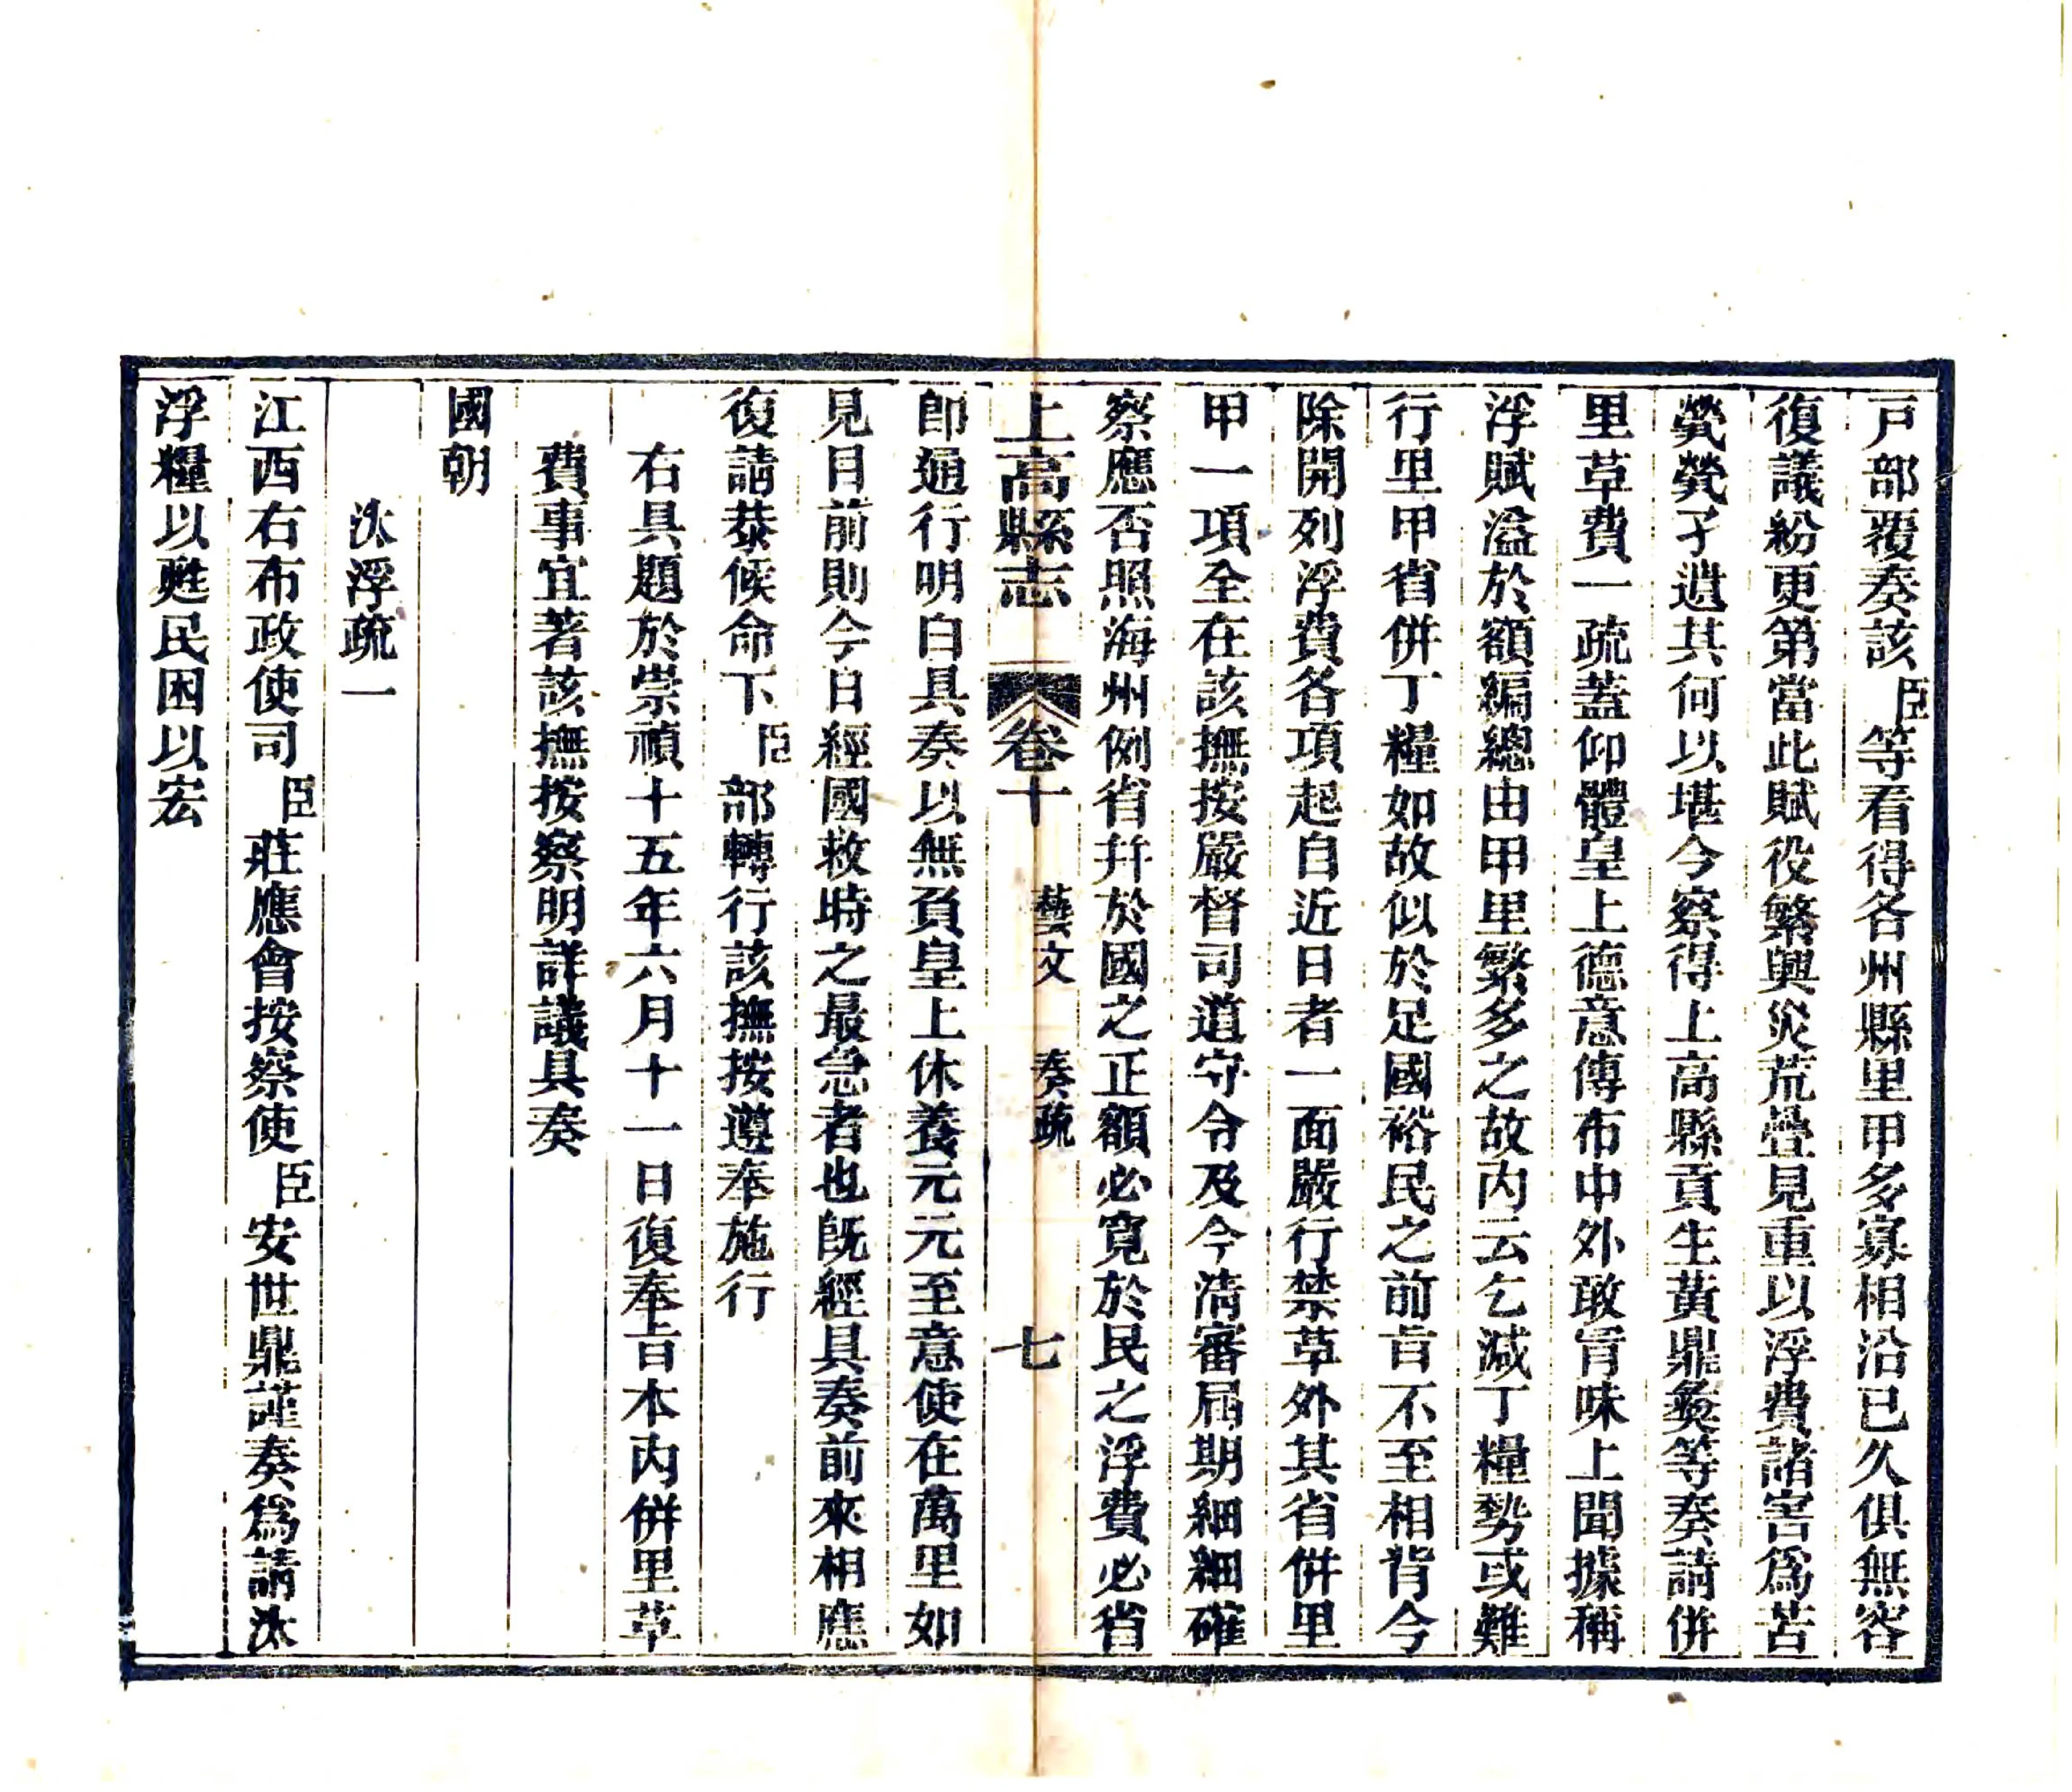 戸部覆奏該臣等看得各州縣里甲多寡相沿已久俱無容
復議紛更第當此賦役繁興災荒疊見重以浮費諸害爲苦
煢煢孑遺其何以堪今察得上高縣貢生黃鼎彝等奏請併
里草費一疏蓋仰體皇上德意傳布中外敢冐昧上聞據稱
浮賦溢於額編總由甲里繁多之故内云乞減丁糧勢或難
行里甲省併丁糧如故似於足國裕民之前旨不至相背今
除開列浮費各項起自近日者一面嚴行禁草外其省併里
甲一項全在該撫按嚴督司道守令及今清審屆期細細確
察應否照海州例省幷於國之正額必寛於民之浮費必省
上高縣志 卷十 藝文 奏疏 七
卽通行明白具奏以無負皇上休養元元至意使在萬里如
見目前則今日經國救時之最急者也旣經具奏前來相應
復請恭候命下臣部轉行該撫按遵奉施行
右具題於崇禎十五年六月十一日復奉旨本内併里草
費事宜著該撫按察明詳議具奏
國朝
汰浮疏一
江西右布政使司臣莊應會按察使臣安世鼎謹奏爲請汰
浮糧以甦民困以宏